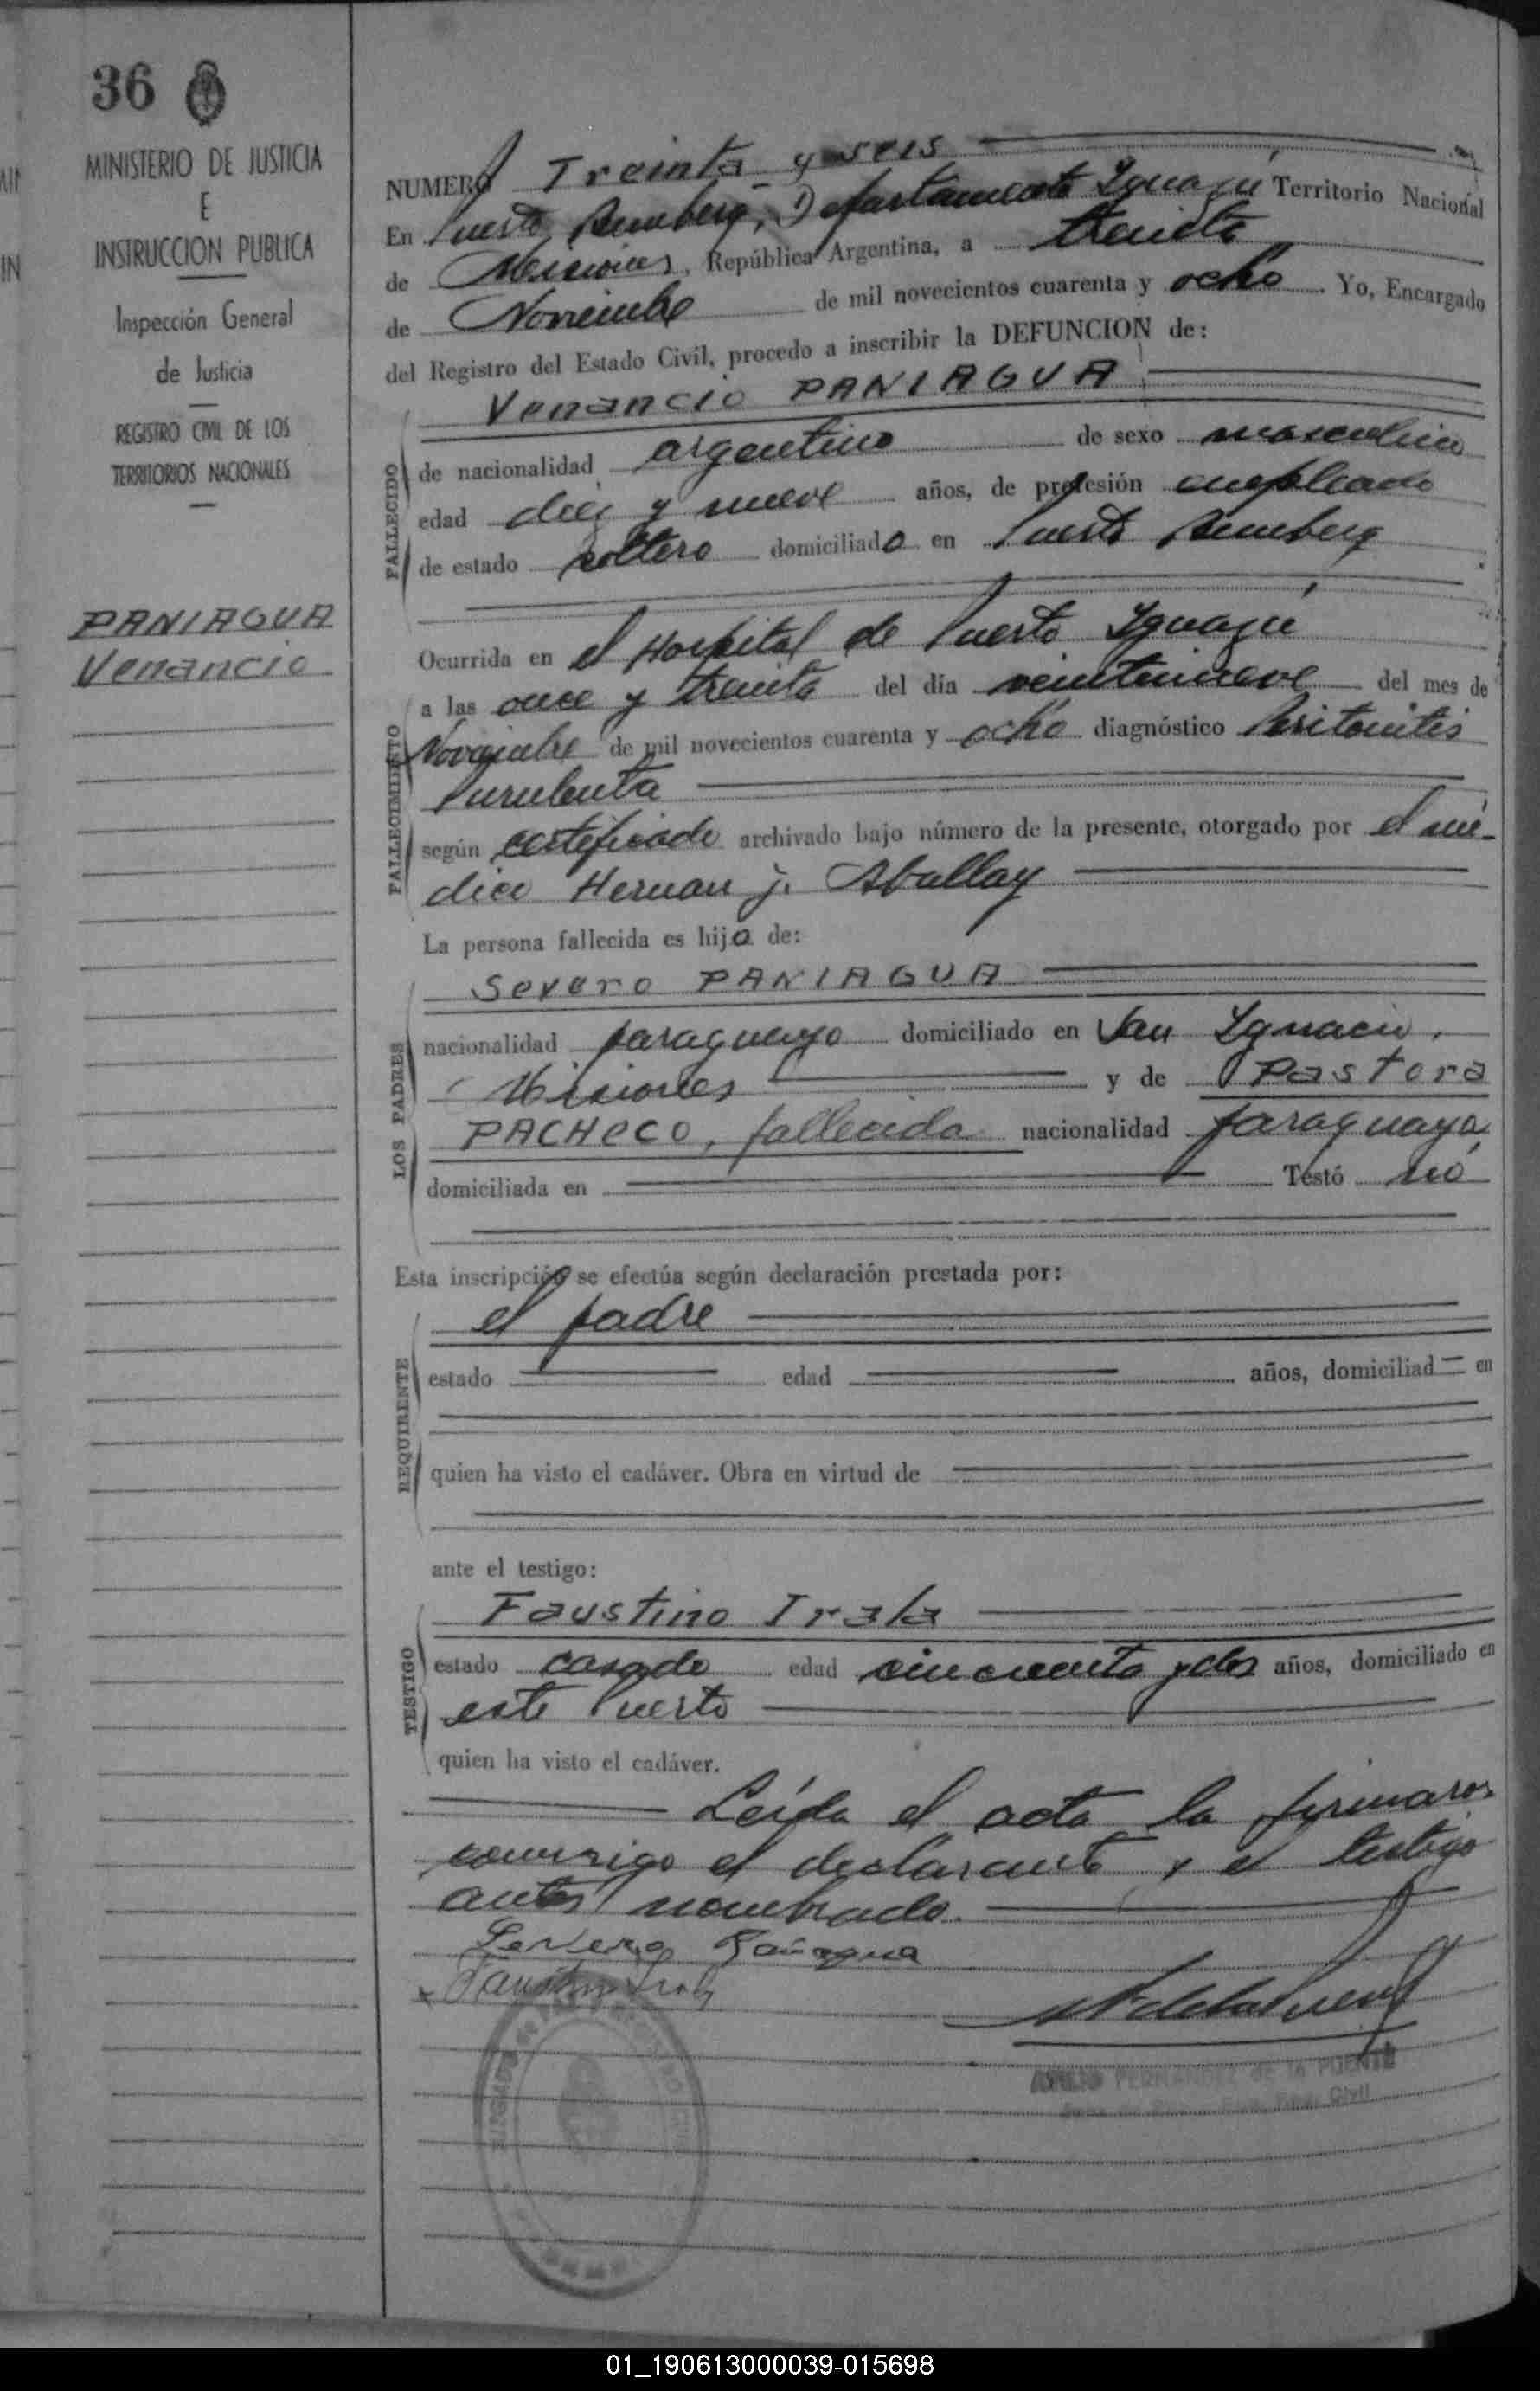 36
MINISTERIO DE JUSTICIA
E
INSTRUCCION PUBLICA
Inspección General
de Justicia
REGISTRO CIVIL DE LOS
TERRITORIOS NACIONALES
PANIAGUA
Venancio
NUMERO Treinta y seis
En Puerto Bemberg, Departamento Iguazú Territorio Nacional
de Misiones, República Argentina, a treinta
de Noviembre de mil novecientos cuarenta y ocho. Yo, Encargado
del Registro del Estado Civil, procedo a inscribir la DEFUNCION de:
Venancio PANIAGUA
FALLECIDO
de nacionalidad argentino de sexo masculino
edad diez y nueve años, de profesión empleado
de estado soltero domiciliado en Puerto Bemberg
FALLECIMIENTO
Ocurrida en el Hospital de Puerto Iguazú
a las once y treinta del día veintinueve del mes de
Noviembre de mil novecientos cuarenta y ocho diagnóstico Peritonitis
Purulenta
según certificado archivado bajo número de la presente, otorgado por el mé-
dico Hernan J. Aballay
La persona fallecida es hijo de:
LOS PADRES
Severo PANIAGUA
nacionalidad paraguayo domiciliado en San Ignacio,
Misiones y de Pastora
PACHECO, fallecida nacionalidad paraguaya
domiciliada en Testó nó
Esta inscripción se efectúa según declaración prestada por:
REQUIRENTE
el padre
estado edad años, domiciliad en
quien ha visto el cadáver. Obra en virtud de
ante el testigo:
TESTIGO
Faustino Irala
estado casado edad cincuenta y dos años, domiciliado en
este Puerto
quien ha visto el cadáver.
Leída el acta la firmaron
conmigo el declarante y el testigo
antes nombrado.
Severo Paniagua
Faustino Irala
FERNANDEZ de la PUENTE
Civil
JUZGADO de PAZ
01_190613000039-015698